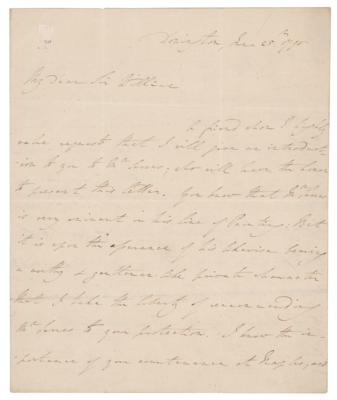 My dear Sir William
A friend whom I highly
value requests that I will give an introduct
ion to you to Mr. Jones; who will have the honor
to present this letter. You know that Mr. Jones
is very eminent in his line of Painting: But
it is upon the of his likewise being
a worthy & gentleman like private character
that I take the liberty of recommending
Mr. Jones to your protection. I know the im-
portance of your countenance at Naples, and